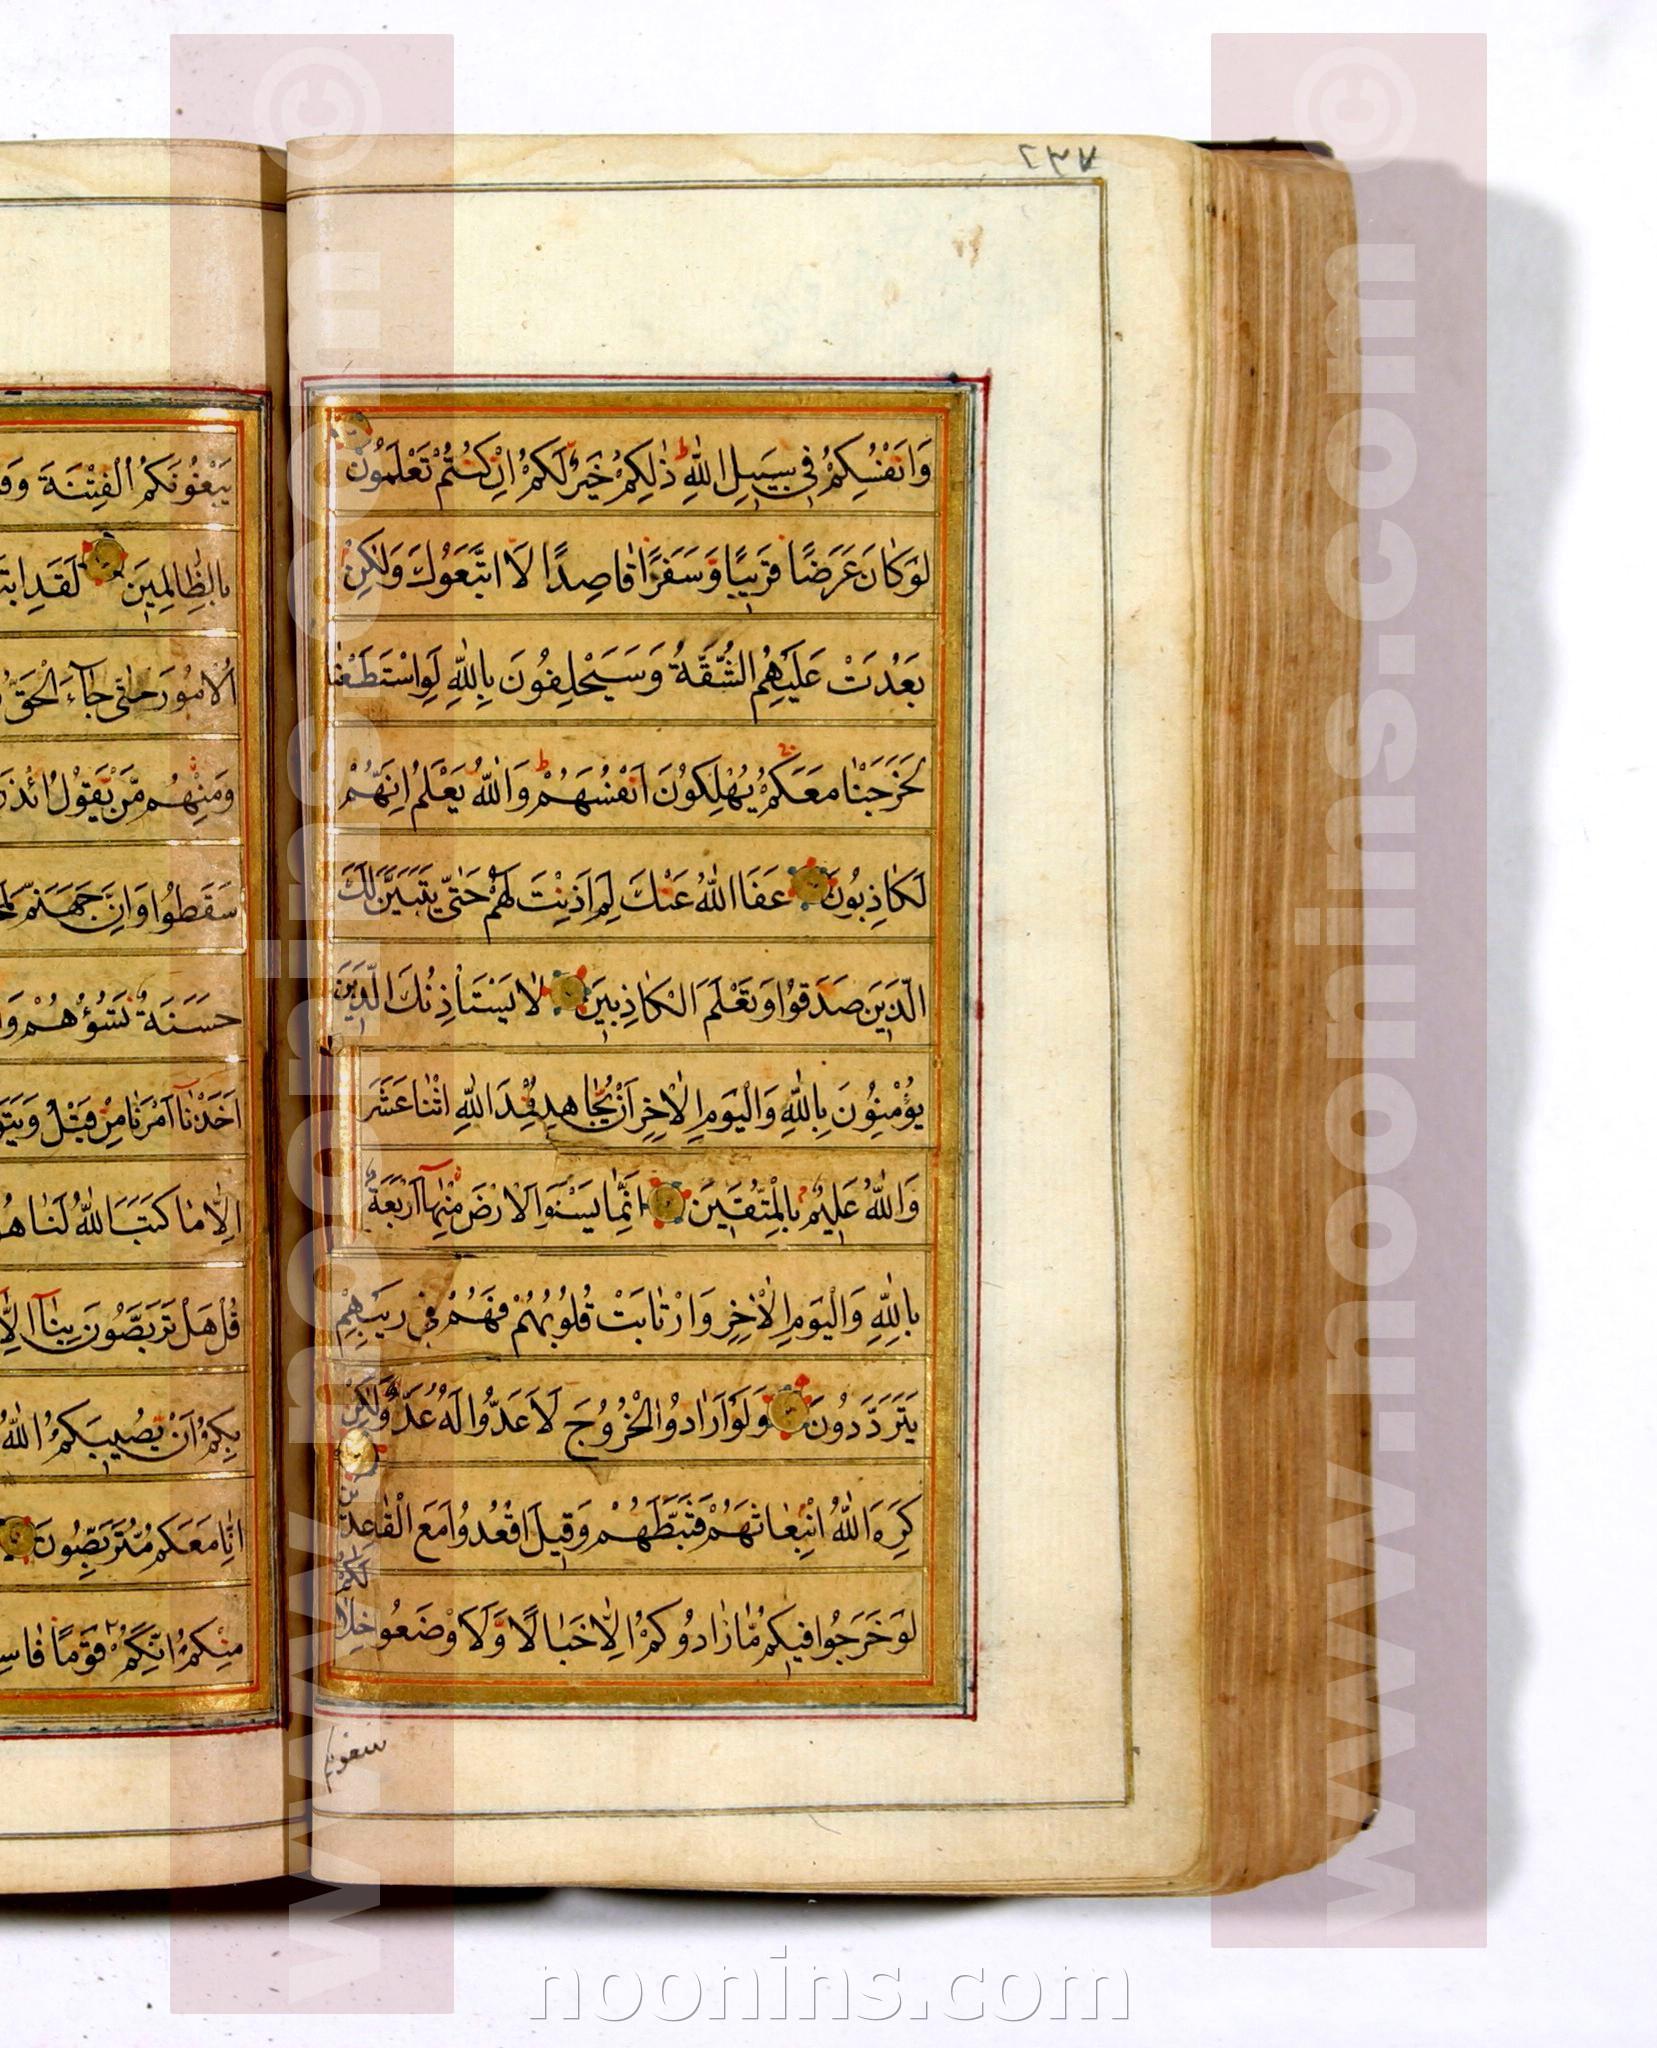 وَاَنْفُسِكُمْ فِي سَبِيلِ اللهِ ذٰلِكُمْ خَيْرٌ لَكُمْ اِنْ كُنْتُمْ تَعْلَمُونَ
لَوْ كَانَ عَرَضًا قَرِيبًا وَسَفَرًا قَاصِدًا لَا اتَّبَعُوكَ وَلٰكِنْ
بَعُدَتْ عَلَيْهِمُ الشُّقَّةُ وَسَيَحْلِفُونَ بِاللهِ لَوِ اسْتَطَعْنَا
لَخَرَجْنَا مَعَكُمْ يُهْلِكُونَ اَنْفُسَهُمْ وَاللهُ يَعْلَمُ اِنَّهُمْ
لَكَاذِبُونَ عَفَا اللهُ عَنْكَ لِمَ اَذِنْتَ لَهُمْ حَتّٰى يَتَبَيَّنَ لَكَ
الَّذِينَ صَدَقُوا وَتَعْلَمَ الْكَاذِبِينَ لَا يَسْتَأْذِنُكَ الَّذِينَ
يُؤْمِنُونَ بِاللهِ وَالْيَوْمِ الْاٰخِرِ اَنْ يُجَاهِد اللهِ اثْنَا عَشَرَ
وَاللهُ عَلِيمٌ بِالْمُتَّقِينَ اِنَّمَا الْاَرْضَ مِنْهَا اَرْبَعَةٌ
بِاللهِ وَالْيَوْمِ الْاٰخِرِ وَارْتَابَتْ قُلُوبُهُمْ فَهُمْ فِي رَيْبِهِمْ
يَتَرَدَّدُونَ وَلَوْ اَرَادُوا الْخُرُوجَ لَا عَدُّوا لَهُ عُدَّةً وَلٰكِنْ
كَرِهَ اللهُ انْبِعَاثَهُمْ فَثَبَّطَهُمْ وَقِيلَ اقْعُدُوا مَعَ الْقَاعِدِين
لَوْ خَرَجُوا فِيكُمْ مَا زَادُوكُمْ اِلَّا خَبَالًا وَلَا وْضَعُوا خِلَالَكُمْ
يبغونكم
يَبْغُونَكُمُ الْفِتْنَةَ
بِالظَّالِمِينَ لَقَدِ
الْاُمُورَ حَتّٰى جَاءَ الْحَقُّ
وَمِنْهُمْ مَنْ يَقُولُ ائْذَنْ
سَقَطُوا وَاِنَّ جَهَنَّمَ
حَسَنَةٌ تَسُؤْهُمْ
اَخَذْنَا اَمْرَنَا مِنْ قَبْلُ
اِلَّا مَا كَتَبَ اللهُ لَنَا
قُلْ هَلْ تَرَبَّصُونَ بِنَا
بِكُمْ اَنْ يُصِيبَكُمُ اللهُ
اِنَّا مَعَكُمْ مُتَرَبِّصُونَ
مِنْكُمْ اِنَّكُمْ قَوْمًا
www.noonins.com ©
www.noonins.com ©
noonins.com